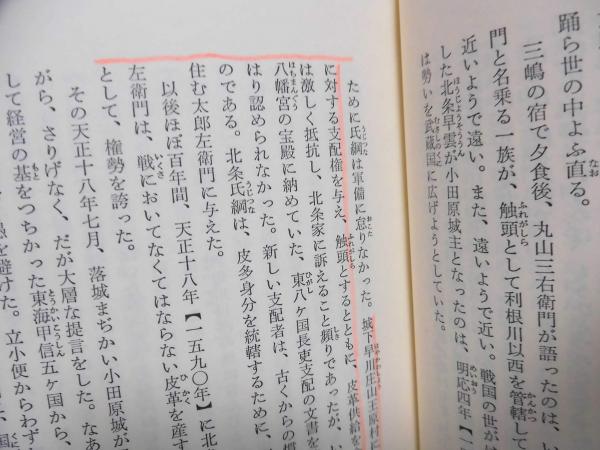 踊ら世の中よふ直る。
三嶋の宿で夕食後、丸山三右衛門が語ったのは、い
門と名乗る一族が、触頭として利根川以西を管轄して
近いようで遠い。また、遠いようで近い。戦国の世が
した北条早雲が小田原城主となったのは、明応四年【一
は勢いを武蔵国に広げようとしていた。
ために氏綱は軍備に怠りなかった。城下早川庄山王原村
に対する支配権を与え、触頭とするとともに、皮革供給を
は激しく抵抗し、北条家に訴えること頻りであったが、い
八幡宮の宝殿に納めていた、東八ケ国長吏支配の文書を
はり認められなかった。新しい支配者は、古くからの慣
のである。北条氏綱は、皮多身分を統轄するために、
住む太郎左衛門に与えた。
以後ほぼ百年間、天正十八年【一五九〇年】に北
左衛門は、戦においてなくてはならない皮革を産す
として、権勢を誇った。
その天正十八年七月、落城まぢかい小田原城が
がら、さりげなく、だが大層な提言をした。なあ
して経営の基をつちかった東海甲信五ケ国から、
を避けた。立小便からわず